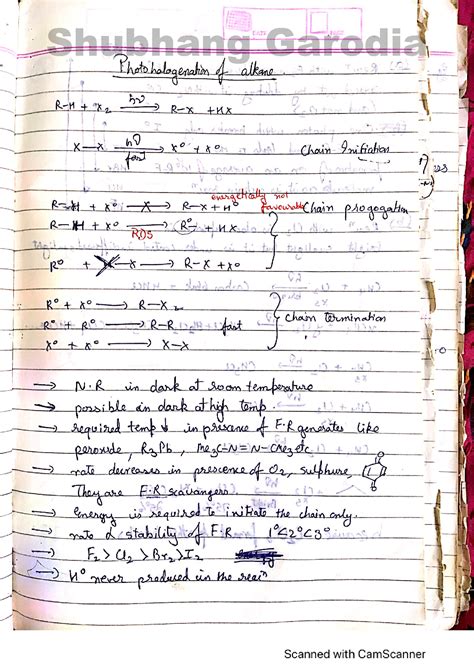 Shubhang Garodia
Photohalogenation of alkane.
R-H + X₂ —hν→ R-X + HX
X-X —hν/fast→ X° + X° Chain Initiation
energetically not favourable
R-H + X° —X→ R-X + H° Chain progogation
R-H + X° —RDS→ R° + HX
R° + X-X → R-X + X°
R° + X° → R-X₂
R° + R° → R-R fast Chain termination
X° + X° → X-X
→ N.R in dark at room temperature
→ possible in dark at high temp.
→ required temp ↓ in prisence of F.R generates like
peroxide, R₃Pb, Me₃C-N=N-CMe₃ etc.
→ rate decreases in prescence of O₂, sulphure,
They are F.R scavangers.
→ Energy is required to initiate the chain only.
→ rate α stability of F.R 1°<2°<3°
→ F₂ > Cl₂ > Br₂ > I₂
→ H° never produced in the reaⁿ
Scanned with CamScanner